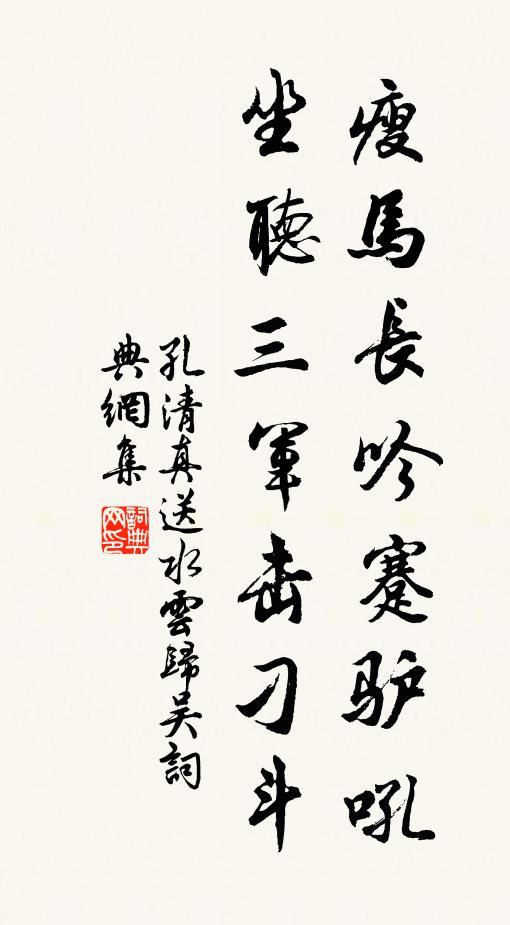 瘦馬長吟蹇驴吼
坐聽三軍击刁斗
孔清真送水雲歸吴詞
典網集
詞典網印